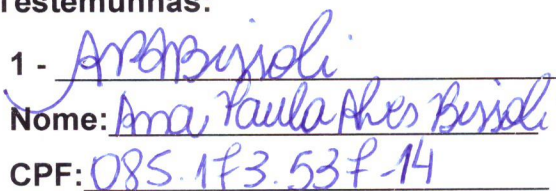 Testemunhas:
1 - APABissoli
Nome: Ana Paula Alves Bissoli
CPF: 085.173.537-14